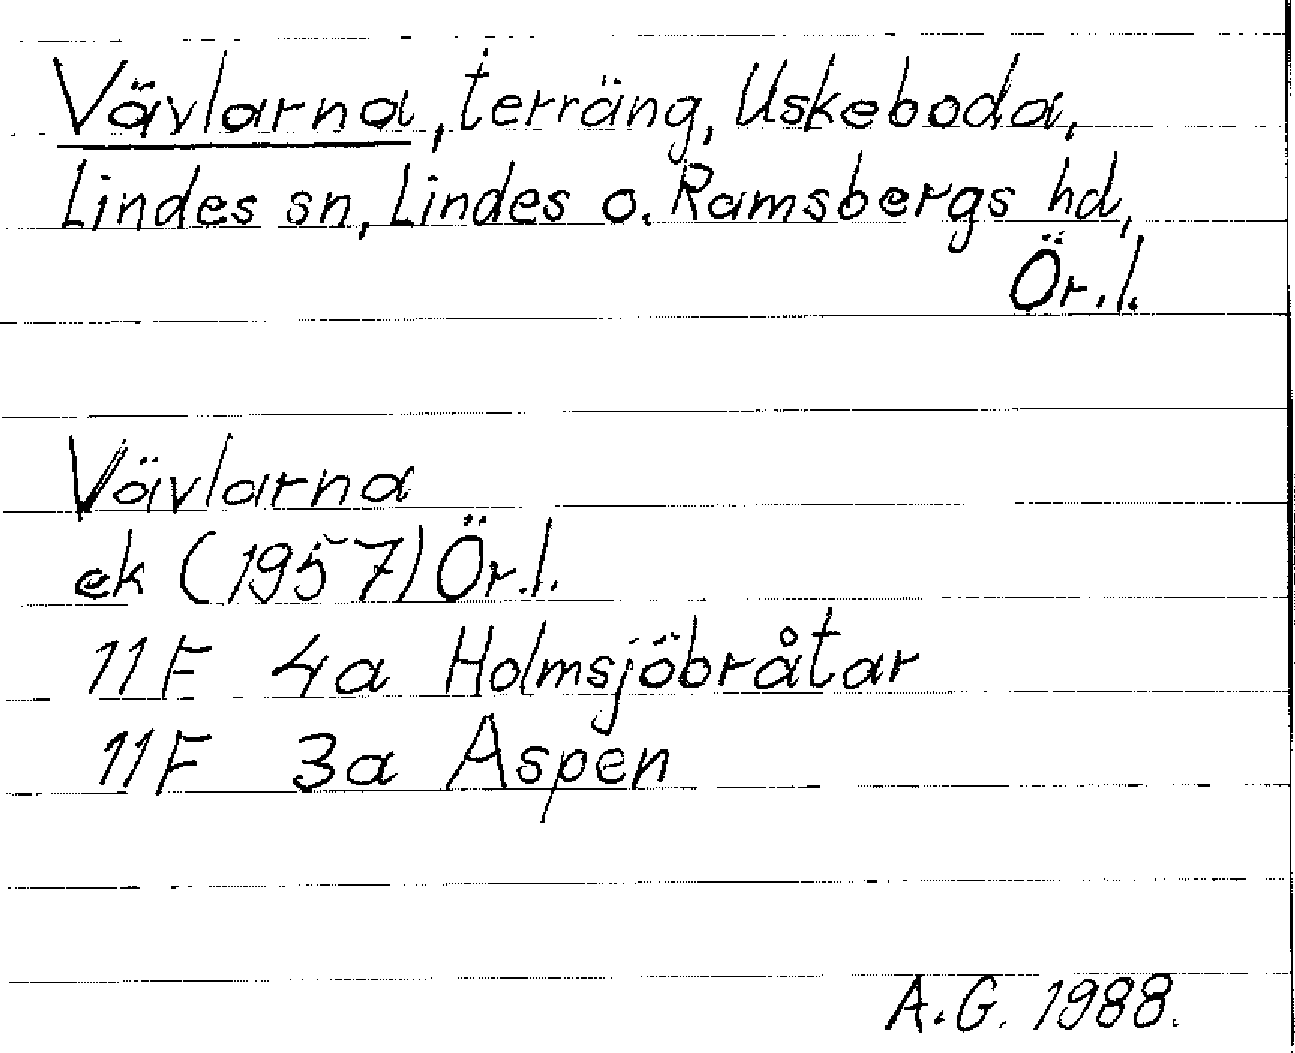 Vävlarna, terräng, Uskeboda,
Lindes sn, Lindes o. Ramsbergs hd,
Ör.l.
Vävlarna
ek (1957) Ör.l.
11F 4a Holmsjöbråtar
11F 3a Aspen
A.G. 1988.